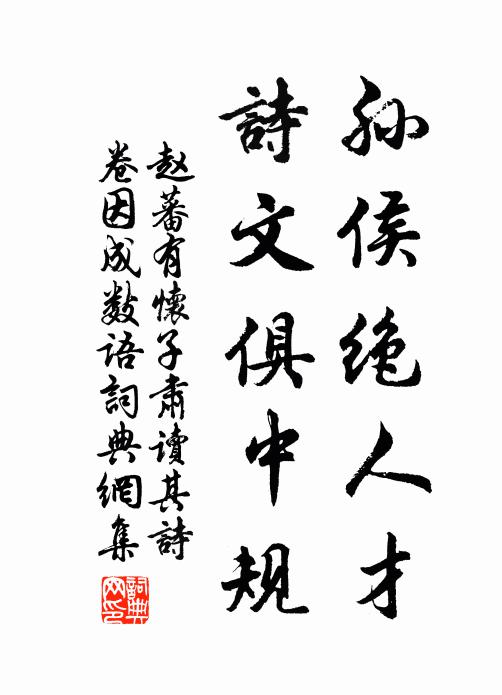 孙侯绝人才
詩文俱中规
赵蕃有懷子肅讀其詩
卷因成数语詞典網集
詞典
网印